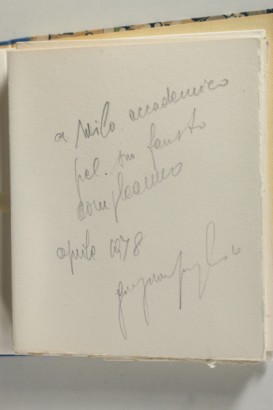 a Milo accademico
pel suo fausto
compleanno
aprile 1978